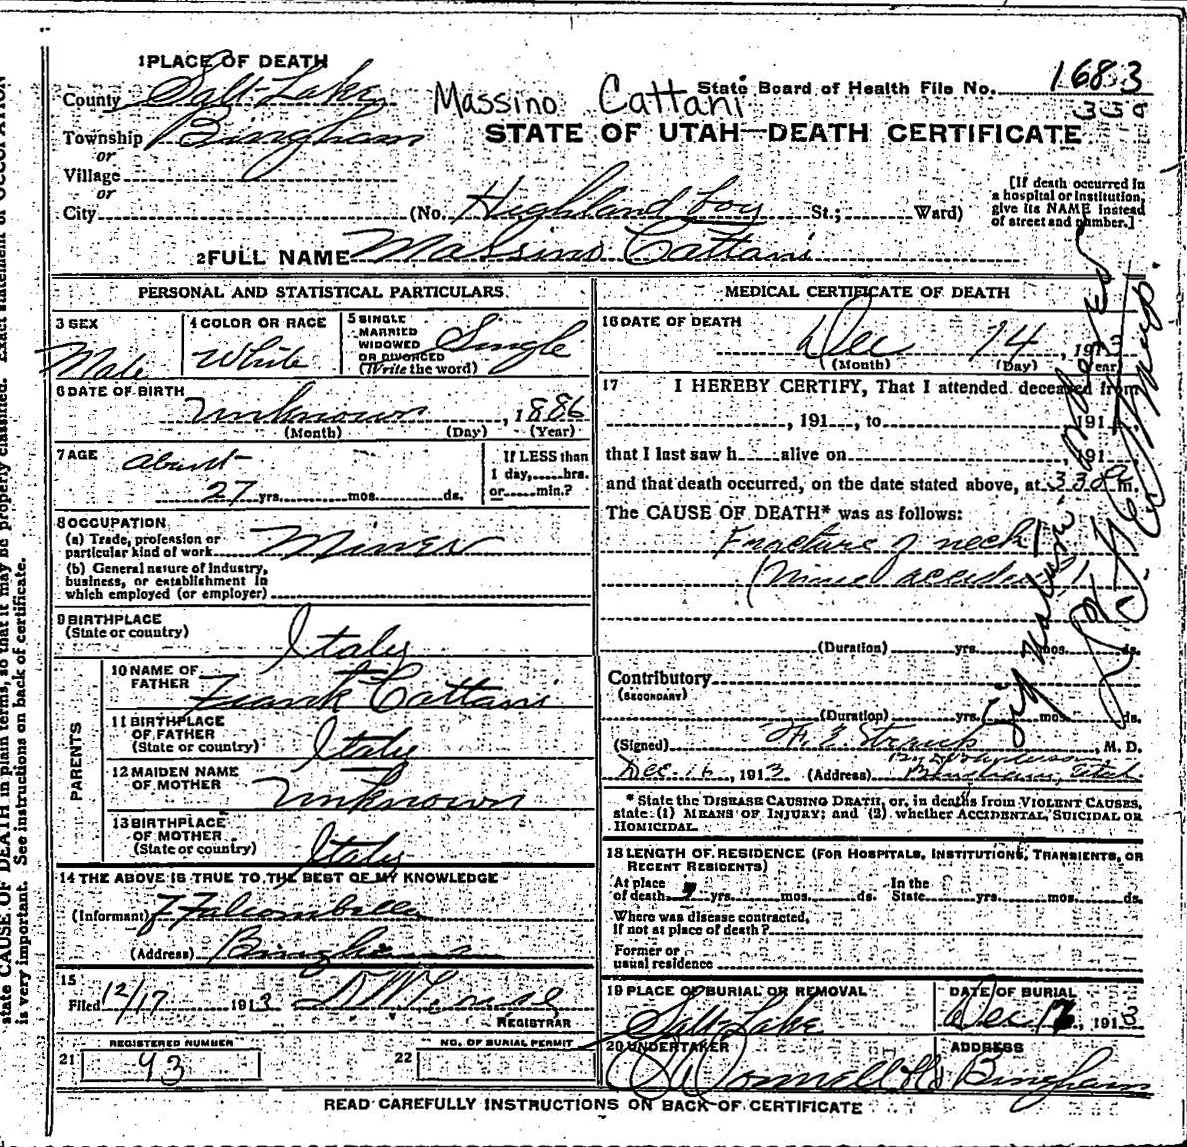 1 PLACE OF DEATH
County Salt Lake
Massino Cattani
State Board of Health File No. 1683
Township Bingham
STATE OF UTAH—DEATH CERTIFICATE
or
Village
or
City (No. Highland Boy St.; Ward)
[If death occurred in
a hospital or institution,
give its NAME instead
of street and number.]
2 FULL NAME Massino Cattani
PERSONAL AND STATISTICAL PARTICULARS
3 SEX
Male
4 COLOR OR RACE
White
5 SINGLE
MARRIED
WIDOWED
OR DIVORCED
(Write the word)
Single
6 DATE OF BIRTH
Unknown, 1886
(Month) (Day) (Year)
7 AGE
about
27 yrs. mos. ds.
If LESS than
1 day, hrs.
or min.?
8 OCCUPATION
(a) Trade, profession or
particular kind of work Miner
(b) General nature of Industry,
business, or establishment in
which employed (or employer)
9 BIRTHPLACE
(State or country)
Italy
PARENTS
10 NAME OF
FATHER
Frank Cattani
11 BIRTHPLACE
OF FATHER
(State or country)
Italy
12 MAIDEN NAME
OF MOTHER
Unknown
13 BIRTHPLACE
OF MOTHER
(State or country)
Italy
14 THE ABOVE IS TRUE TO THE BEST OF MY KNOWLEDGE
(Informant)
(Address) Bingham
15
Filed 12/17 1913
REGISTRAR
REGISTERED NUMBER
21 93
NO. OF BURIAL PERMIT
22
MEDICAL CERTIFICATE OF DEATH
16 DATE OF DEATH
Dec 14, 1913
(Month) (Day) (Year)
17 I HEREBY CERTIFY, That I attended deceased from
, 191 , to 191
that I last saw h alive on , 191
and that death occurred, on the date stated above, at 330 m.
The CAUSE OF DEATH* was as follows:
Fracture of neck
(Mine accident)
(Duration) yrs. mos. ds.
Contributory
(SECONDARY)
(Duration) yrs. mos. ds.
(Signed) F. E. Straup, M. D.
Dec. 16, 1913 (Address) Bingham, Utah
* State the DISEASE CAUSING DEATH, or, in deaths from VIOLENT CAUSES,
state (1) MEANS OF INJURY; and (2) whether ACCIDENTAL, SUICIDAL OR
HOMICIDAL.
18 LENGTH OF RESIDENCE (FOR HOSPITALS, INSTITUTIONS, TRANSIENTS, OR
RECENT RESIDENTS)
At place
of death yrs. mos. ds.
In the
State yrs. mos. ds.
Where was disease contracted,
if not at place of death?
Former or
usual residence
19 PLACE OF BURIAL OR REMOVAL
Salt Lake
DATE OF BURIAL
Dec 17, 1913
20 UNDERTAKER
O'Donnell & Co
ADDRESS
Bingham
READ CAREFULLY INSTRUCTIONS ON BACK OF CERTIFICATE
state CAUSE OF DEATH in plain terms, so that it may be properly classified. Exact statement of OCCUPATION
is very important. See instructions on back of certificate.